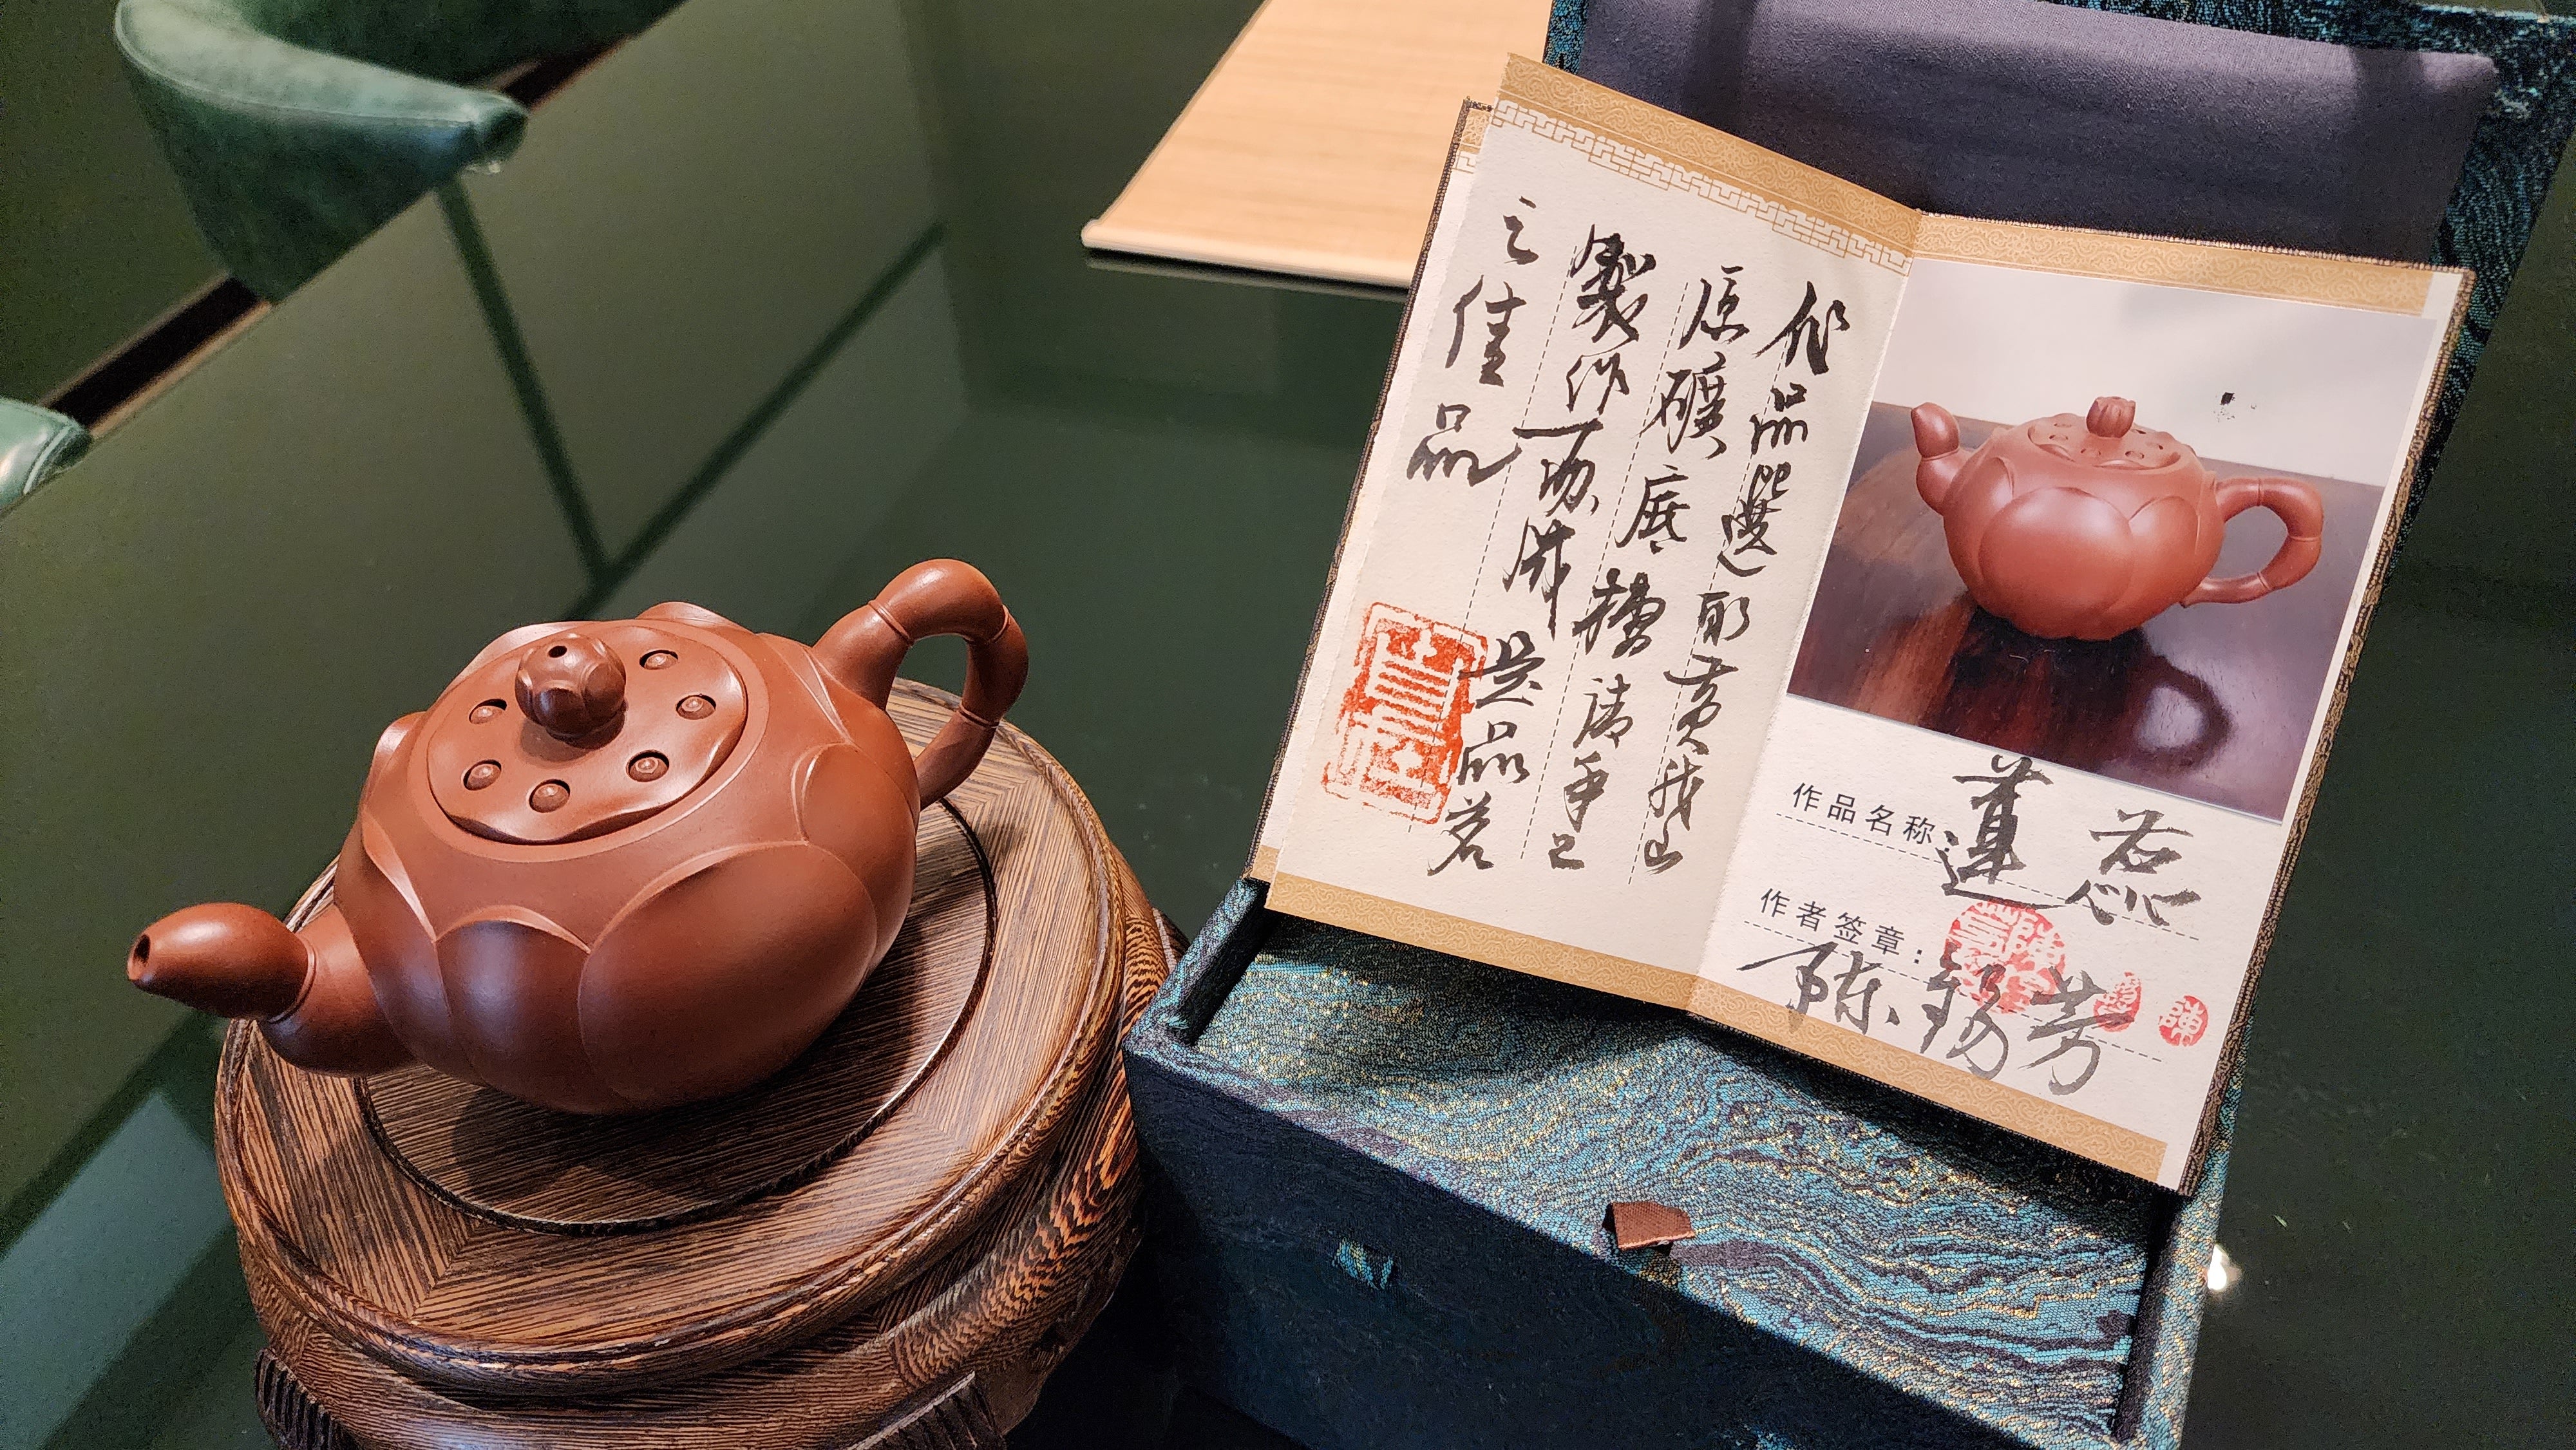 作品名称：蓮蕊
作者签章：
陈锡芳
陳
作品選取黃龙山
原礦底槽清手工
製作而成是品茗
之佳品